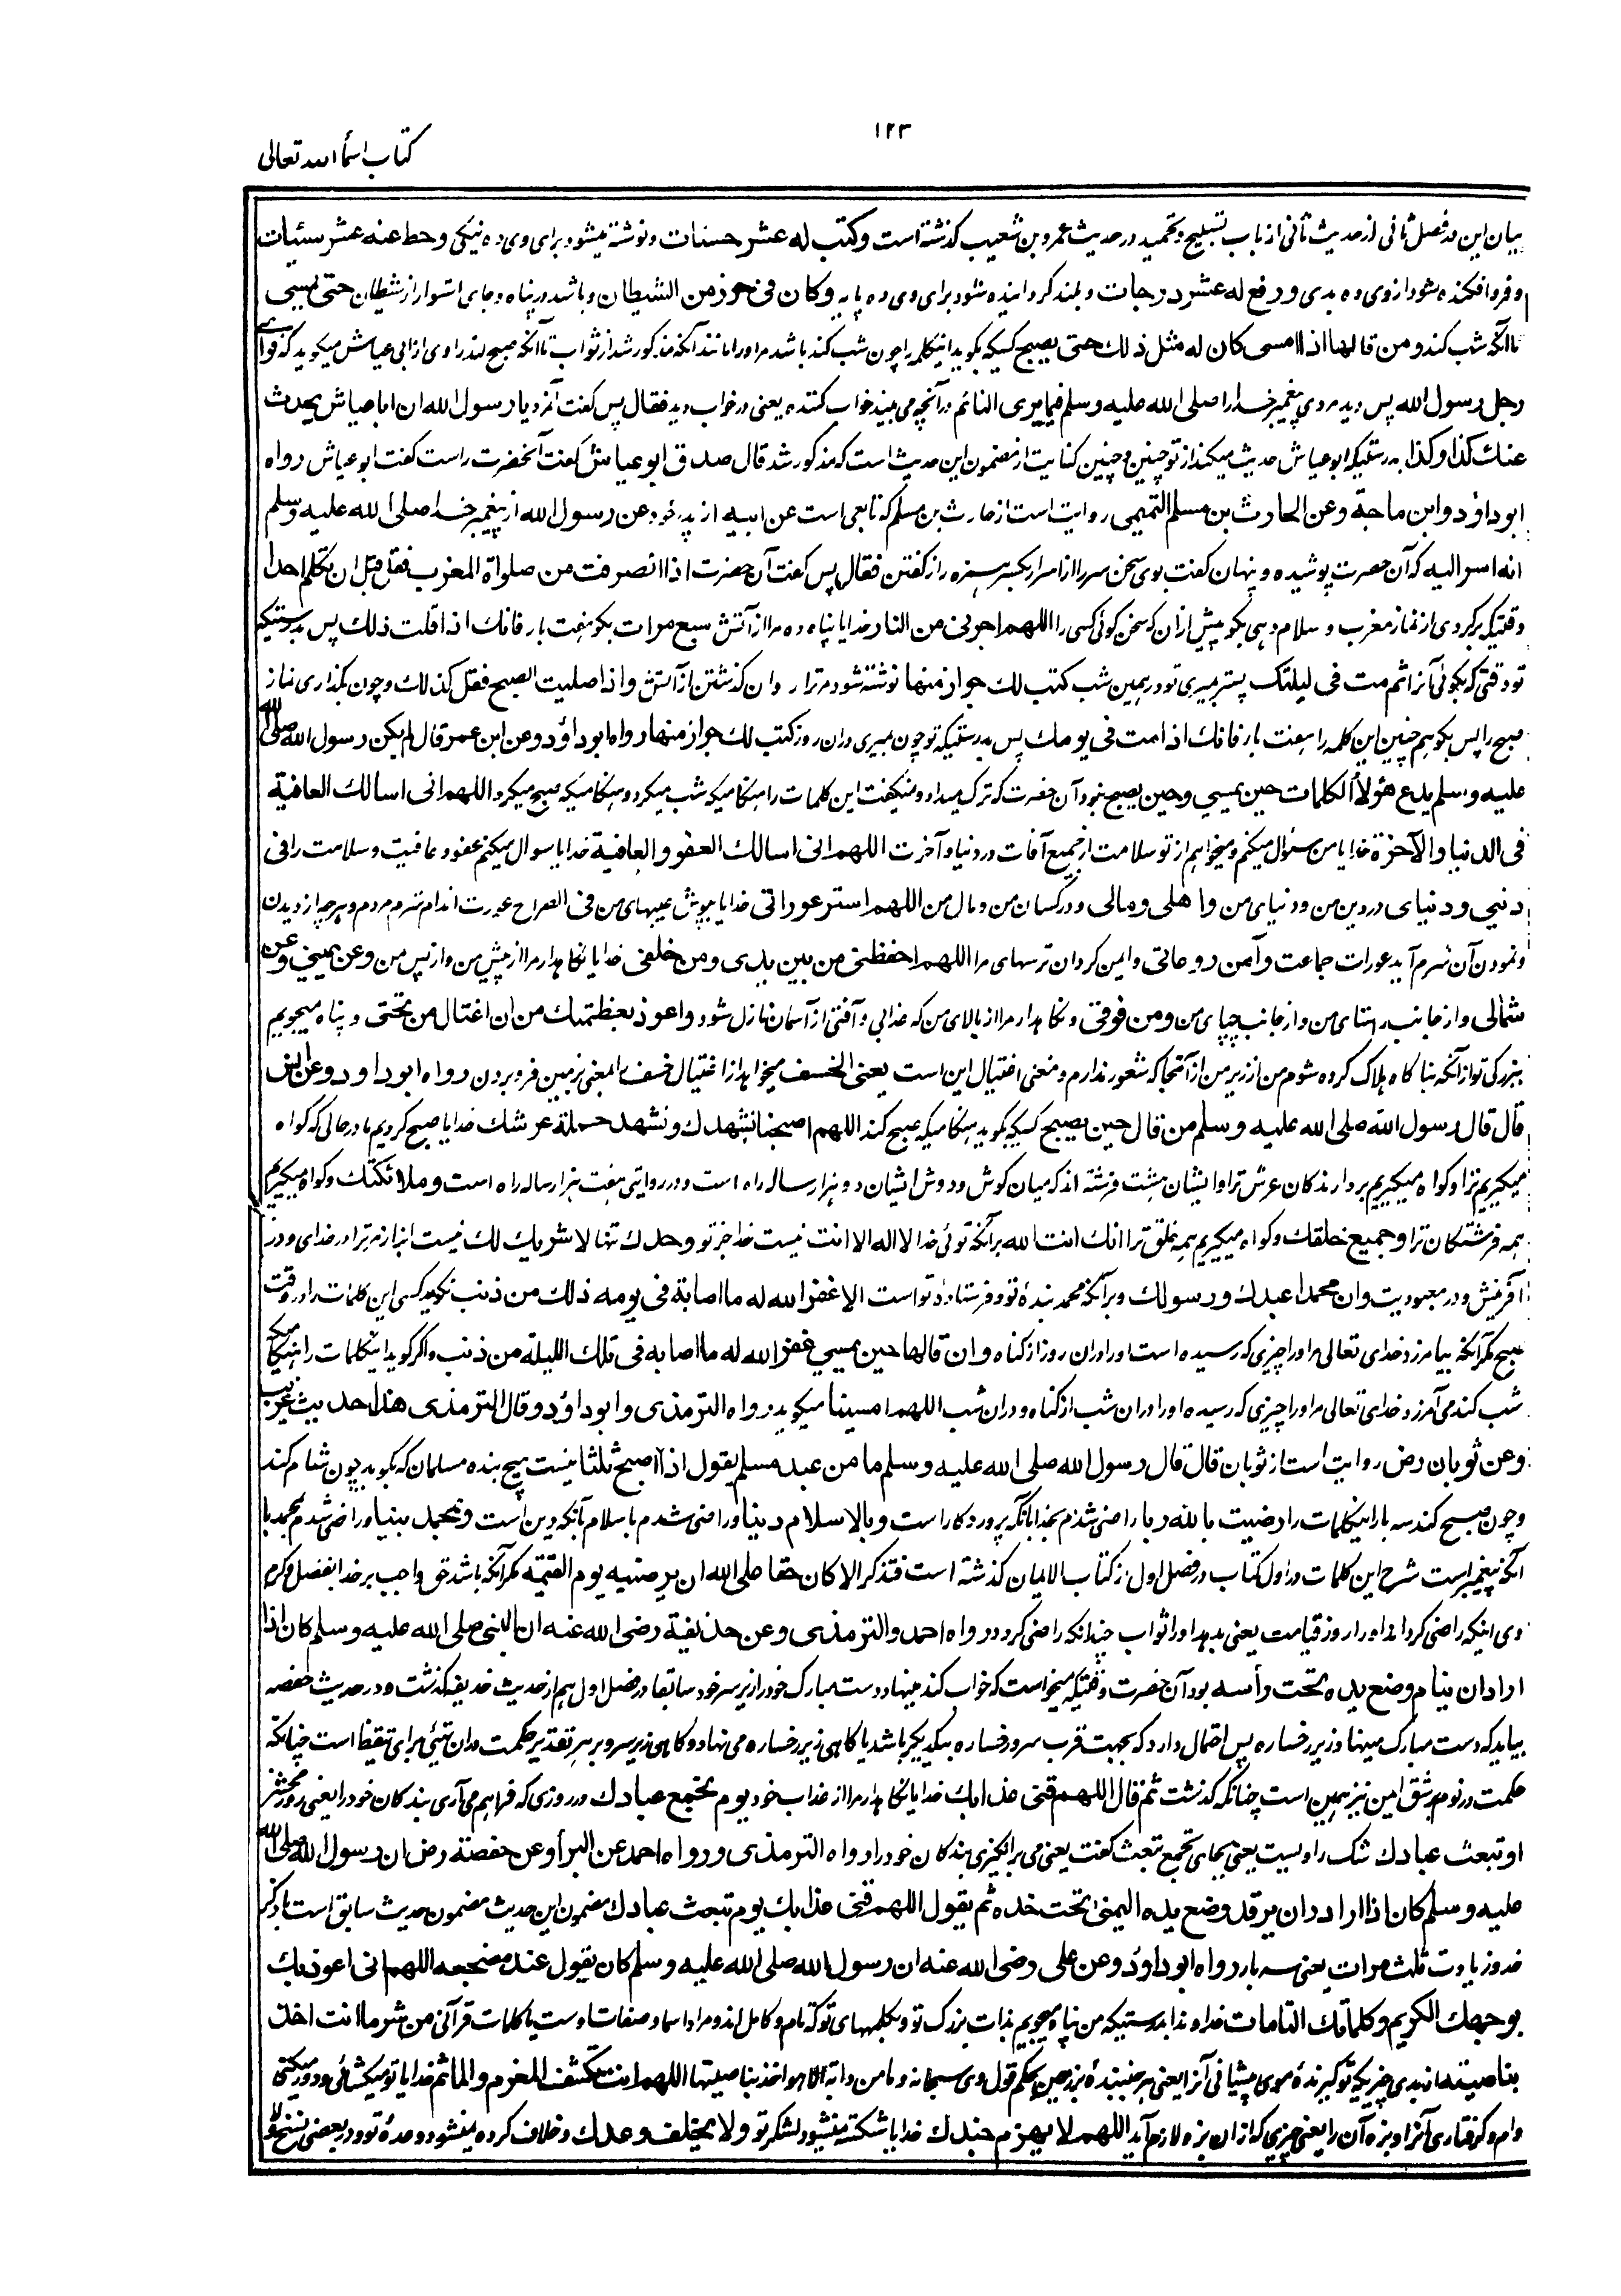 ۱۲۳
کتاب اسمأ الله تعالی
بیان این در فصل ثانی از حدیث ثانی از باب تسبیح و تحمید در حدیث عمرو بن شعیب کذشته است وکتب له عشر حسنات و نوشته میشود برای وی ده نیکی وحط عنه عشر سیئات
و فرو افکنده شود از وی ده بدی ورفع له عشر درجات و بلند کردانیده شود برای وی ده پایه وکان فی حرز من الشیطان و باشد در پناه و جای استوار از شیطان حتی یمسی
تا آنکه شب کند ومن قالها اذا امسی کان له مثل ذلك حتی یصبح کسیکه بکوید اینکلمه را چون شب کند باشد مر او را مانند آنکه مذکور شد از ثواب تا آنکه صبح کند راوی از ابی عیاش میکوید که فرأی
رجل رسول الله پس دید مردی پیغمبر خدا را صلی الله علیه وسلم فیما یری النائم در آنچه می بیند خواب کننده یعنی در خواب دید فقال پس کفت آنمرد یا رسول الله ان ابا عیاش یحدث
عنك کذا وکذا بدرستیکه ابو عیاش حدیث میکند از تو چنین و چنین کنایت از مضمون این حدیث است که مذکور شد قال صدق ابو عیاش کفت آنحضرت راست کفت ابو عیاش رواه
ابو داؤد وابن ماجة وعن الحارث بن مسلم التمیمی روایت است از حارث بن مسلم که تابعی است عن ابیه از پدر خود عن رسول الله از پیغمبر خدا صلی الله علیه وسلم
انه اسر الیه که آن حضرت پوشیده و پنهان کفت بوی سخن سر را از اسرار بکسر همزه راز کفتن فقال پس کفت آن حضرت اذا انصرفت من صلواة المغرب فقل قبل ان تکلم احدا
وقتیکه برکردی از نماز مغرب و سلام دهی بکو پیش از ان که سخن کوئی کسی را اللهم اجرنی من النار خدایا پناه ده مرا از آتش سبع مرات بکو هفت بار فانك اذا قلت ذلك پس بدرستیکه
تو وقتی که بکوئی آنرا ثم مت فی لیلتك پستر بمیری تو در همین شب کتب لك جواز منها نوشته شود مر ترا روان کذشتن از آتش واذا صلیت الصبح فقل کذلك و چون بکذاری نماز
صبح را پس بکو هم چنین این کلمه را هفت بار فانك اذا مت فی یومك پس بدرستیکه تو چون بمیری دران روز کتب لك جواز منها رواه ابو داؤد وعن ابن عمر قال لم یکن رسول الله صلی الله
علیه وسلم یدع هؤلاء الکلمات حین یمسی وحین یصبح نبود آن حضرت که ترک میداد و نمیکفت این کلمات را هنکامیکه شب میکرد و هنکامیکه صبح میکرد اللهم انی اسالك العافیة
فی الدنیا والآخرة خدایا من سؤال میکنم و میخواهم از تو سلامت از جمیع آفات در دنیا و آخرت اللهم انی اسالك العفو والعافیة خدایا سوال میکنم عفو و عافیت و سلامت را فی
دینی ودنیای در دین من و دنیای من واهلی ومالی و در کسان من و مال من اللهم استر عوراتی خدایا بپوش عیبهای من فی الصراح عورت اندام شرم مردم و هر چه از دیدن
و نمودن آن شرم آید عورات جماعت وآمن روعاتی و ایمن کردان ترسهای مرا اللهم احفظنی من بین یدی ومن خلفی خدایا نکاهدار مرا از پیش من و از پس من وعن یمینی وعن
شمالی و از جانب راستای من و از جانب چپای من ومن فوقی و نکاهدار مرا از بالای من که عذابی و آفتی از آسمان نازل شود واعوذ بعظمتك من ان اغتال من تحتی و پناه میجویم
ببزرکی تو از آنکه بناکاه هلاک کرده شوم من از زیر من از آنجا که شعور ندارم و معنی اغتیال این است یعنی الخسف میخواهد از اغتیال خسف المعنی بزمین فرو بردن رواه ابو داود وعن انس
قال قال رسول الله صلی الله علیه وسلم من قال حین یصبح کسیکه بکوید هنکامیکه صبح کند اللهم اصبحنا نشهدك ونشهد حملة عرشك خدایا صبح کردیم ما در حالی که کواه
میکیریم ترا و کواه میکیریم بردارندکان عرش ترا و ایشان هشت فرشته اند که میان کوش و دوش ایشان دو هزار ساله راه است و در روایتی هفت هزار ساله راه است وملائکتك و کواه میکیریم
همه فرشتکان ترا وجمیع خلقك و کواه میکیریم همه خلق ترا انك انت الله برآنکه توئی خدا لا اله الا انت نیست خدا جز تو وحدك تنها لا شریك لك نیست انباز مر ترا در خدای و در
آفرینش و در معبودیت وان محمدا عبدك ورسولك و برآنکه محمد بندۀ تو و فرستادۀ تو است الا غفر الله له ما اصابه فی یومه ذلك من ذنب نکوید کسی این کلمات را در وقت
صبح مکر آنکه بیامرزد خدای تعالی مر او را چیزی که رسیده است او را دران روز از کناه وان قالها حین یمسی غفر الله له ما اصابه فی تلك اللیلة من ذنب و اکر کوید اینکلمات را هنکامیکه
شب کند می آمرزد خدای تعالی مر او را چیزی که رسیده او را دران شب از کناه و دران شب اللهم امسینا میکوید رواه الترمذی وابو داؤد وقال الترمذی هذا حدیث غریب
وعن ثوبان رض روایت است از ثوبان قال قال رسول الله صلی الله علیه وسلم ما من عبد مسلم یقول اذا اصبح ثلثا نیست هیچ بنده مسلمان که بکوید چون شام کند
و چون صبح کند سه بار اینکلمات را رضیت بالله ربا راضی شدم بخدا بانکه پروردکار است وبالاسلام دینا و راضی شدم باسلام بانکه دین است وبمحمد نبیا و راضی شدم بمحمد با
آنکه پیغمبر است شرح این کلمات در اول کتاب در فصل اول از کتاب الایمان کذشته است فتذکر الا کان حقا علی الله ان یرضیه یوم القیمة مکر آنکه باشد حق واجب بر خدا بفضل و کرم
وی اینکه راضی کرداند او را روز قیامت یعنی بدهد او را ثواب چندانکه راضی کردد رواه احمد والترمذی وعن حذیفة رضی الله عنه ان النبی صلی الله علیه وسلم کان اذا
اراد ان ینام وضع یده تحت رأسه بود آن حضرت وقتیکه میخواست که خواب کند مینهاد دست مبارک خود را زیر سر خود سابقا در فصل اول هم از حدیث حذیفه کذشت و در حدیث حفصه
بیاید که دست مبارک مینهاد زیر رخساره پس احتمال دارد که بجهت قرب سر و رخساره بیکدیکر باشد یا کاهی زیر رخساره می نهاد و کاهی زیر سر و بر هر تقدیر حکمت دران تهیئ برای تیقظ است چنانکه
حکمت در نوم بر شق ایمن نیز همین است چنانکه کذشت ثم قال اللهم قنی عذابك خدایا نکاهدار مرا از عذاب خود یوم تجمع عبادك در روزی که فراهم می آری بندکان خود را یعنی روز محشر
او تبعث عبادك شک راویست یعنی بجای تجمع تبعث کفت یعنی می برانکیزی بندکان خود را رواه الترمذی ورواه احمد عن البرأ وعن حفصة رض ان رسول الله صلی الله
علیه وسلم کان اذا اراد ان یرقد وضع یده الیمنی تحت خده ثم یقول اللهم قنی عذابك یوم تبعث عبادك مضمون این حدیث مضمون حدیث سابق است با ذکر
خد و زیادت ثلث مرات یعنی سه بار رواه ابو داؤد وعن علی رضی الله عنه ان رسول الله صلی الله علیه وسلم کان یقول عند مضجعه اللهم انی اعوذ بك
بوجهك الکریم وکلماتك التامات خداوندا بدرستیکه من پناه میجویم بذات بزرک تو و بکلمهای تو که تام و کامل اند و مراد اسما و صفات اوست یا کلمات قرآنی من شر ما انت اخذ
بناصیته از بدی چیزیکه تو کیرندۀ موی پیشانی آنرا یعنی هر جنبندۀ بر زمین بحکم قول وی سبحانه و ما من دابة الا هو اخذ بناصیتها اللهم انت تکشف المغرم والماثم خدایا تو میکشائی و دور میکنی
وام و کرفتاری آنرا و بزه آن را یعنی چیزی که ازان بزه لازم آید اللهم لا یهزم جندك خدایا شکسته نمیشود لشکر تو ولا یخلف وعدك و خلاف کرده نمیشود وعدۀ تو و در بعضی نسخ لا